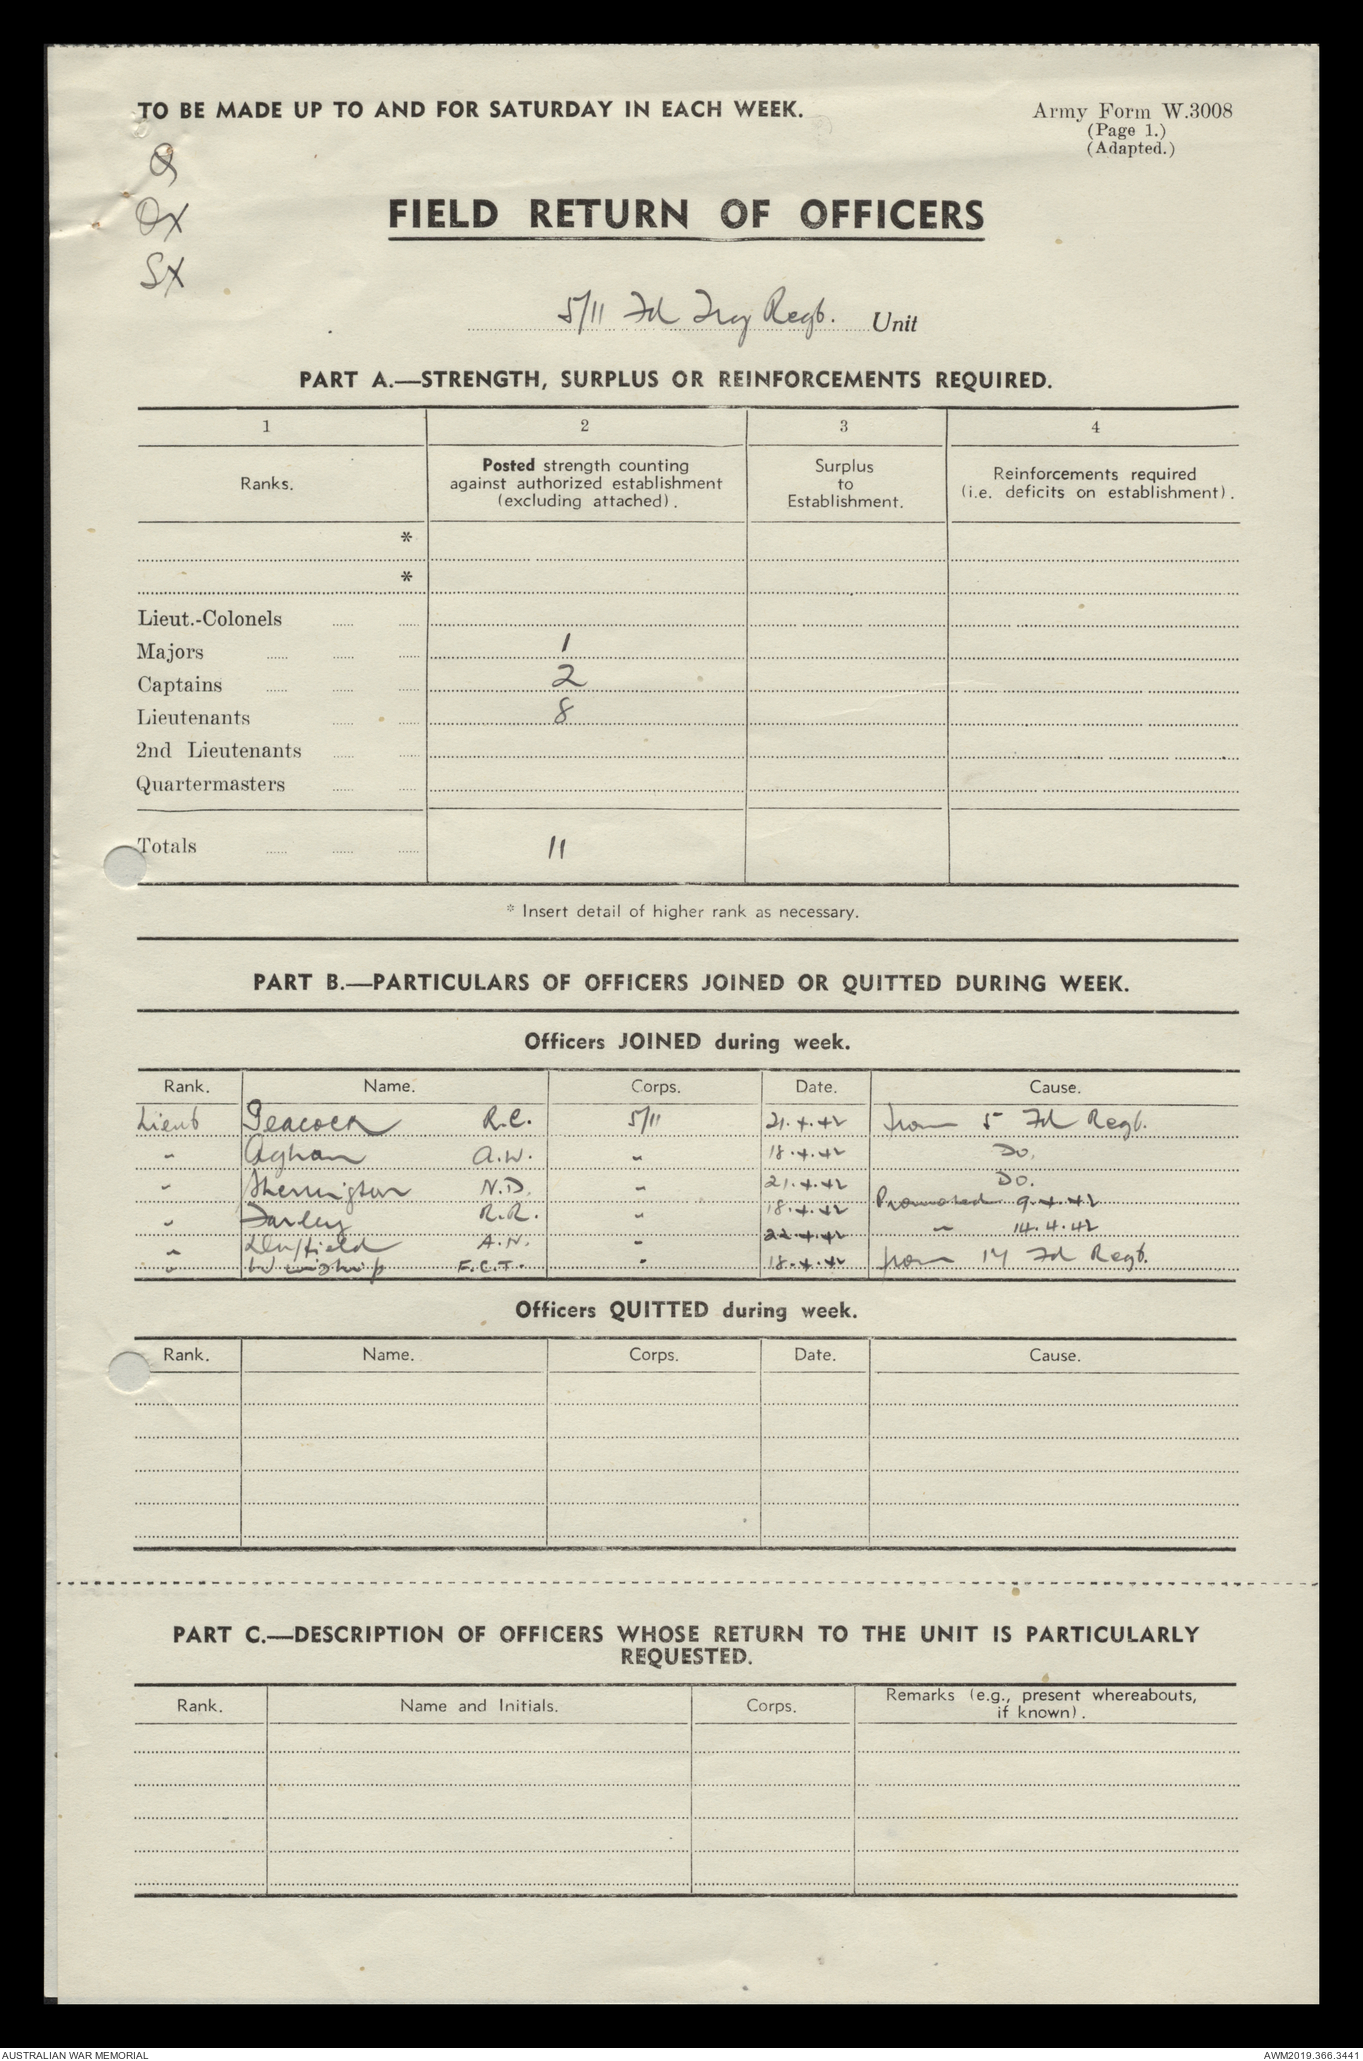 TO BE MADE UP TO AND FOR SATURDAY IN EACH WEEK.
Army Form W.3008
(Page 1.)
(Adapted.)
Q
OX
SX
FIELD RETURN OF OFFICERS
5/11 Fd Trg Regt. Unit
PART A.—STRENGTH, SURPLUS OR REINFORCEMENTS REQUIRED.
1 2 3 4
Ranks. Posted strength counting against authorized establishment (excluding attached). Surplus to Establishment. Reinforcements required (i.e. deficits on establishment).
*
*
Lieut.-Colonels
Majors 1
Captains 2
Lieutenants 8
2nd Lieutenants
Quartermasters
Totals 11
* Insert detail of higher rank as necessary.
PART B.—PARTICULARS OF OFFICERS JOINED OR QUITTED DURING WEEK.
Officers JOINED during week.
Rank. Name. Corps. Date. Cause.
Lieut Peacock R.C. 5/11 21.4.42 from 5 Fd Regt.
" A.W. " 18.4.42 Do.
" Sherrington N.D. " 21.4.42 Do.
" Farley R.R. " 18.4.42 Promoted 9.4.42
" A.N. " 22.4.42 " 14.4.42
" Winship F.C.T. " 18.4.42 from 14 Fd Regt.
Officers QUITTED during week.
Rank. Name. Corps. Date. Cause.
PART C.—DESCRIPTION OF OFFICERS WHOSE RETURN TO THE UNIT IS PARTICULARLY
REQUESTED.
Rank. Name and Initials. Corps. Remarks (e.g., present whereabouts, if known).
AUSTRALIAN WAR MEMORIAL
AWM2019.366.3441